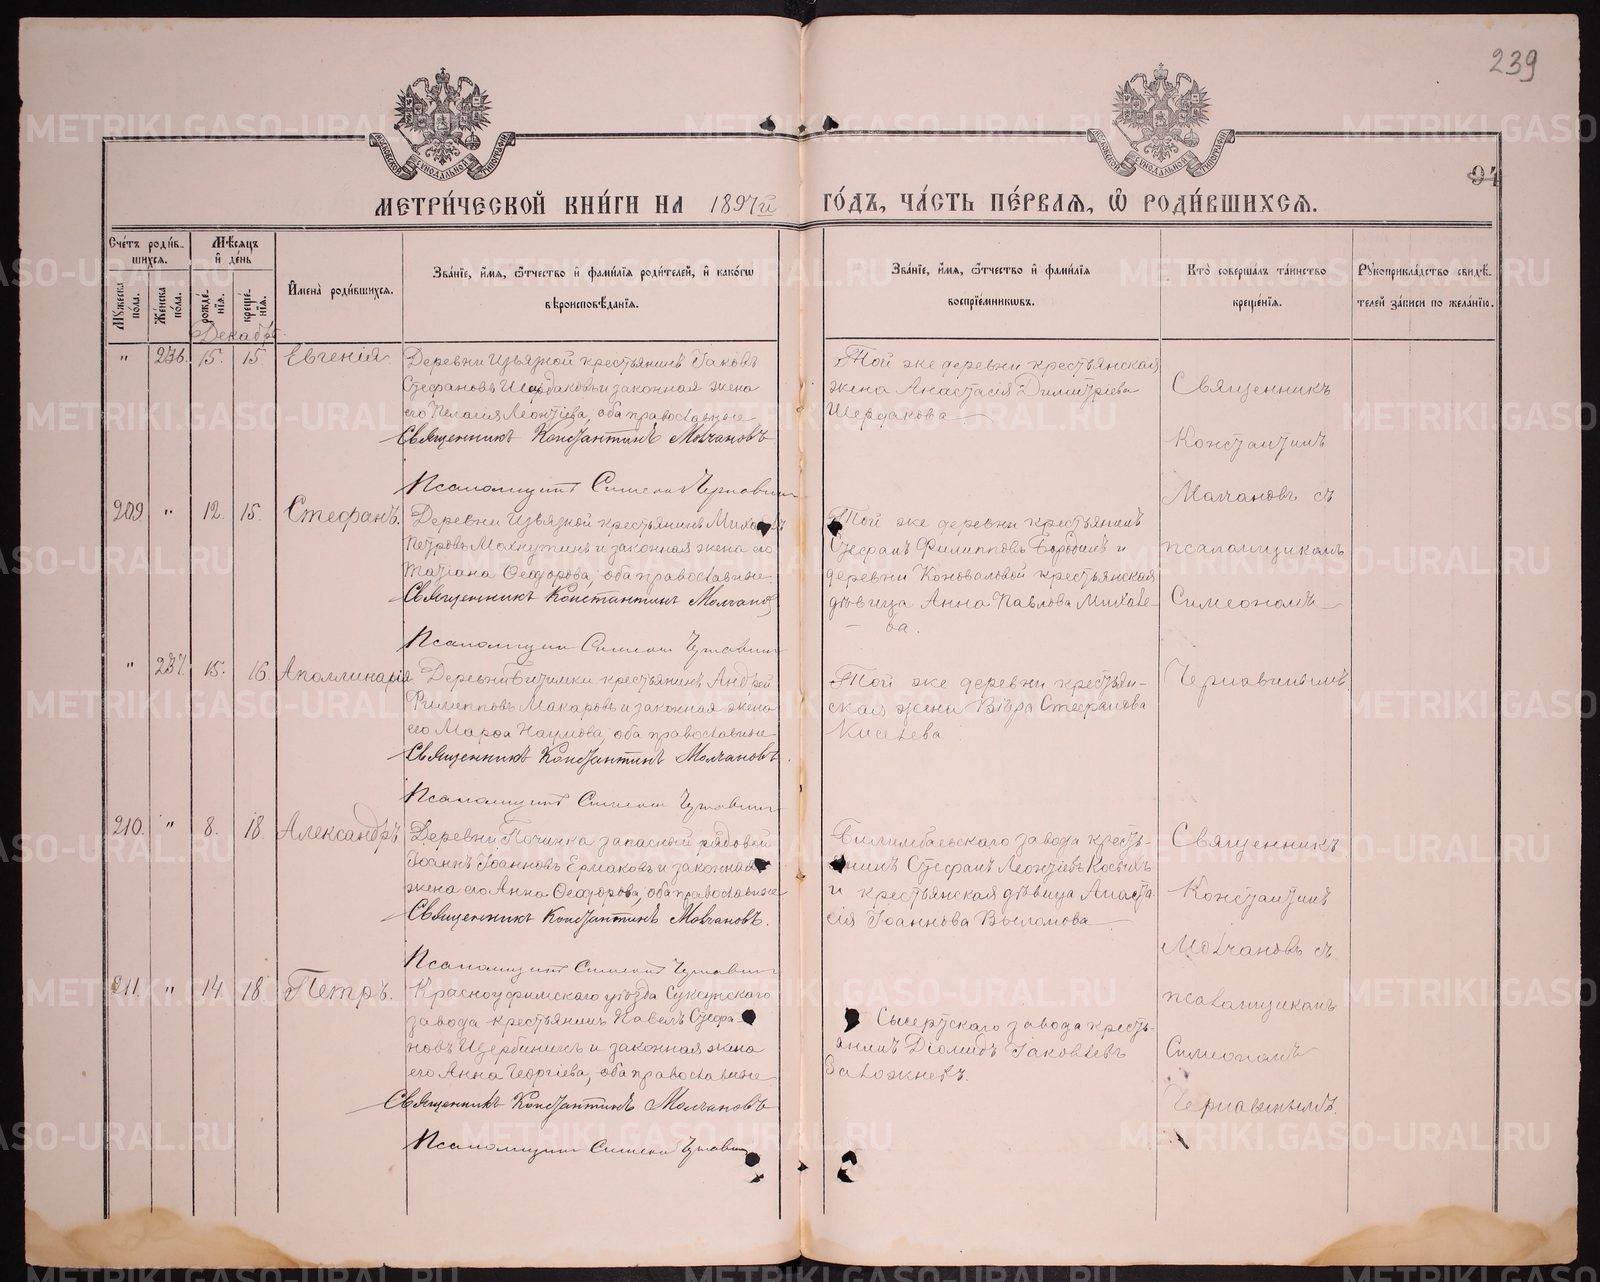 239
94
МОСКОВСКОЙ СИНОДАЛЬНОЙ ТИПОГРАФІИ
МОСКОВСКОЙ СИНОДАЛЬНОЙ ТИПОГРАФІИ
МЕТРИ́ЧЕСКОЙ КНИ́ГИ НА 1897й ГО́ДЪ, ЧА́СТЬ ПЕ́РВАЯ, Ѡ҆ РОДИ́ВШИХСЯ.
Сче́тъ роди́в-
шихся.
Мѣ́сяцъ
и҆ де́нь
Мꙋжеска
пола.
Же́нска
пола.
рожде́-
нїя.
креще́-
нїя.
И҆мена̀ роди́вшихся.
Зва́нїе, и҆́мя, ѻ҆́тчество и҆ фами́лїя роди́телей, и҆ како́гѡ
вѣроисповѣ́данїя.
Зва́нїе, и҆́мя, ѻ҆́тчество и҆ фами́лїя
воспрїе́мниковъ.
Кто̀ соверша́лъ та́инство
креще́нїя.
Рꙋкоприкла́дство свидѣ́-
телей за́писи по жела́нїю.
Декабрь
" 236. 15. 15. Евгенія
Деревни Извязной крестьянинъ Іаковъ
Стефановъ Шердаковъ и законная жена
его Пелагія Леонтіева, оба православные
Священникъ Константинъ Молчановъ
Псаломщикъ Симеонъ Чернавинъ
Той же деревни крестьянская
жена Анастасія Димитріева
Шердакова
Священникъ
Константинъ
Молчановъ съ
псаломщикомъ
Симеономъ
Чернавинымъ.
209 " 12. 15. Стефанъ.
Деревни Извязной крестьянинъ Михаилъ
Петровъ Махнуткинъ и законная жена его
Татіана Ѳеодорова, оба православные.
Священникъ Константинъ Молчановъ
Псаломщикъ Симеонъ Чернавинъ
Той же деревни крестьянинъ
Стефанъ Филипповъ Бородинъ и
деревни Коноваловой крестьянская
дѣвица Анна Павлова Михале-
ва.
" 237. 15. 16. Аполлинарія
Деревни Битимки крестьянинъ Андрей
Филипповъ Макаровъ и законная жена
его Марѳа Наумова, оба православные
Священникъ Константинъ Молчановъ
Псаломщикъ Симеонъ Чернавинъ
Той же деревни крестьян-
ская жена Вѣра Стефанова
Киселева
210. " 8. 18. Александръ
Деревни Починка запасной рядовой
Іоаннъ Іоанновъ Ермаковъ и законная
жена его Анна Ѳеодорова, оба православные
Священникъ Константинъ Молчановъ.
Псаломщикъ Симеонъ Чернавинъ
Билимбаевскаго завода кресть-
янинъ Стефанъ Леонтіевъ Косыхъ
и крестьянская дѣвица Анаста-
сія Іоаннова
Священникъ
Константинъ
Молчановъ съ
псаломщикомъ
Симеономъ
Чернавинымъ.
211. " 14. 18. Петръ.
Красноуфимскаго уѣзда Суксунскаго
завода крестьянинъ Павелъ Стефа-
новъ Щербининъ и законная жена
его Анна Георгіева, оба православные
Священникъ Константинъ Молчановъ
Псаломщикъ Симеонъ Чернавинъ
Сысертскаго завода кресть-
янинъ Діомидъ Іаковлевъ
Заложневъ.
METRIKI.GASO-URAL.RU